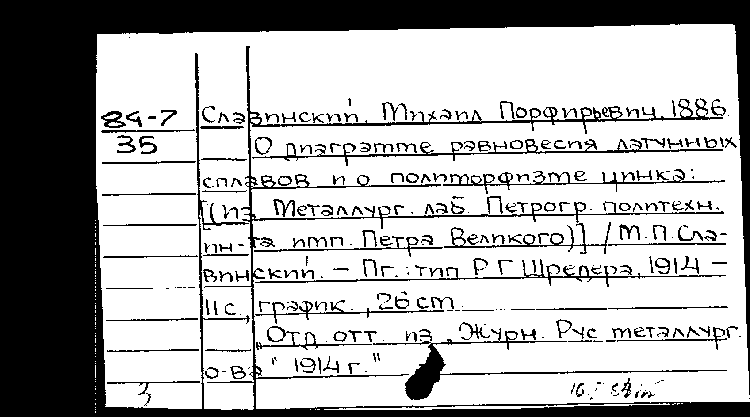 84-7
35
Славинский, Михаил Порфирьевич, 1886
О диаграмме равновесия латунных
сплавов и о полиморфизме цинка:
[(из Металлург. лаб. Петрогр. политехн.
ин-та имп. Петра Великого)] / М.П.Сла-
винский. – Пг.: тип Р Г Шредера, 1914 –
11 с, график., 26 cm.
„Отд отт из „Журн. Рус металлург.
о-ва" 1914 г."
3